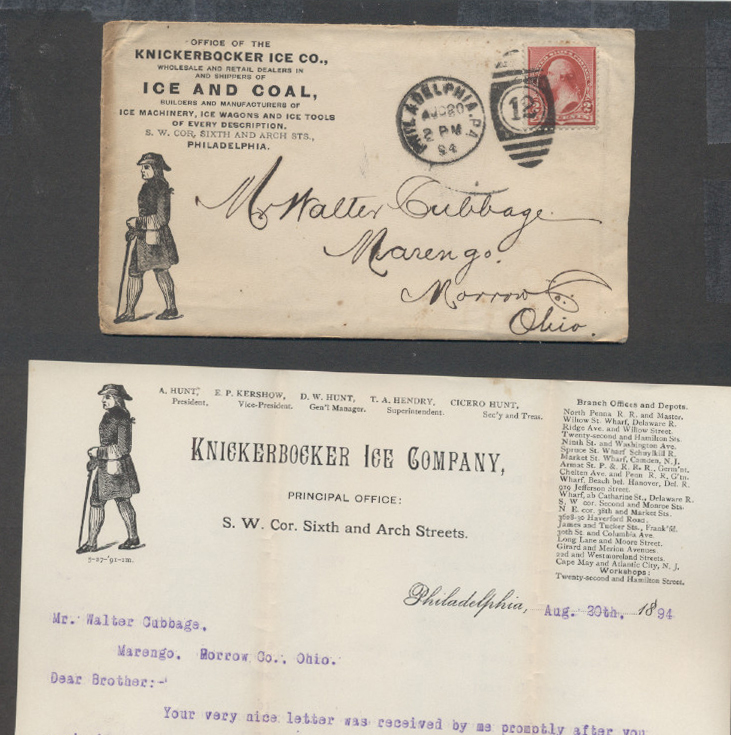 OFFICE OF THE
KNICKERBOCKER ICE CO.,
WHOLESALE AND RETAIL DEALERS IN
AND SHIPPERS OF
ICE AND COAL,
BUILDERS AND MANUFACTURERS OF
ICE MACHINERY, ICE WAGONS AND ICE TOOLS
OF EVERY DESCRIPTION.
S. W. COR. SIXTH AND ARCH STS.,
PHILADELPHIA.
PHILADELPHIA, PA
AUG 20
2 PM
94
12
2
CENTS
Mr Walter Cubbage
Marengo.
Morrow Co.
Ohio.
A. HUNT, E. P. KERSHOW, D. W. HUNT, T. A. HENDRY, CICERO HUNT,
President. Vice-President. Gen'l Manager. Superintendent. Sec'y and Treas.
KNICKERBOCKER ICE COMPANY,
PRINCIPAL OFFICE:
S. W. Cor. Sixth and Arch Streets.
7-27-'91-1m.
Branch Offices and Depots.
North Penna R. R. and Master.
Willow St. Wharf, Delaware R.
Ridge Ave. and Willow Street.
Twenty-second and Hamilton Sts.
Ninth St. and Washington Ave.
Spruce St. Wharf Schuylkill R.
Market St. Wharf, Camden, N. J.
Armat St. P. & R. R. R., Germ'nt.
Chelten Ave. and Penn R. R, G'tn.
Wharf, Beach bel. Hanover, Del. R.
929 Jefferson Street.
Wharf, ab Catharine St., Delaware R.
S. W cor. Second and Monroe Sts.
N. E. cor. 38th and Market Sts.
3628-30 Haverford Road.
James and Tucker Sts., Frank'fd.
30th St. and Columbia Ave.
Long Lane and Moore Street.
Girard and Merion Avenues
22d and Westmoreland Streets.
Cape May and Atlantic City, N. J.
Workshops:
Twenty-second and Hamilton Street.
Philadelphia, Aug. 20th, 1894
Mr. Walter Cubbage,
Marengo, Morrow Co., Ohio.
Dear Brother:-
Your very nice letter was received by me promptly after you